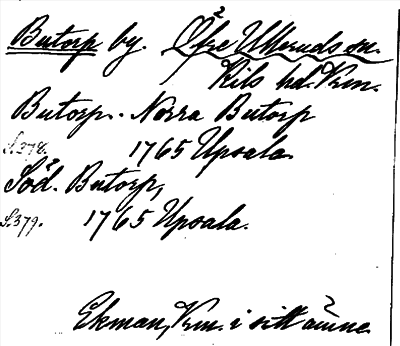 Butorp by. Öfre Ulleruds sn.
Kils hd. Vrm.
Butorp. Norra Butorp
S.378. 1765 Upsala.
Söd. Butorp,
S.379. 1765 Upsala.
Ekman, Vrm. i sitt ämne